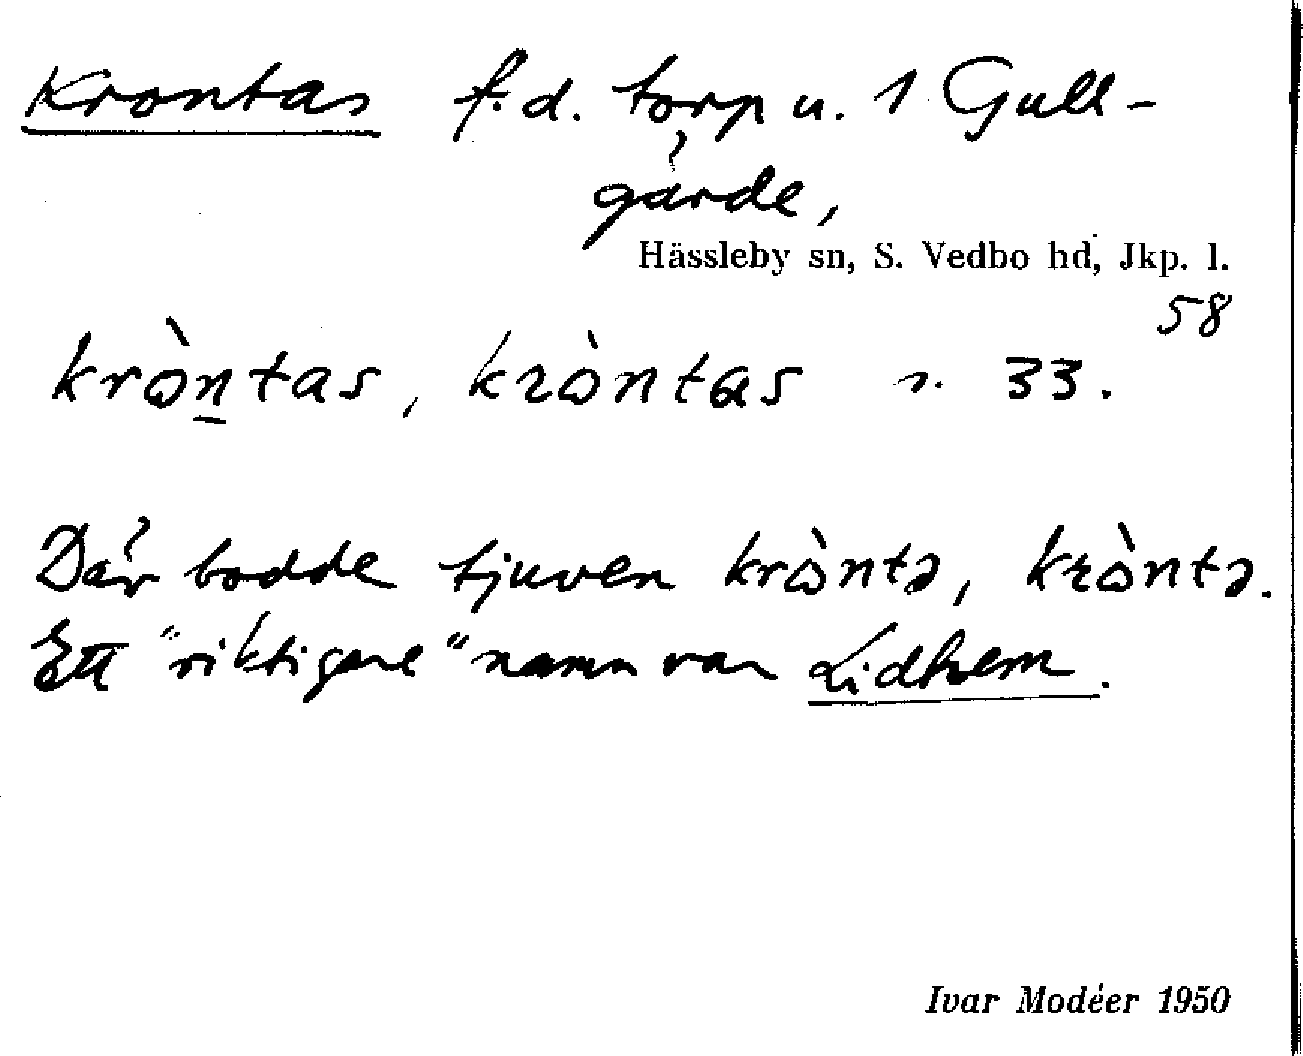 Krontas f.d. torp u. 1 Gull-
gärde,
Hässleby sn, S. Vedbo hd, Jkp. l.
58
kròn̠tas, kròntas n. 33.
Där bodde tjuven kròntə, kròntə.
Ett "riktigare" namn var Lidhem.
Ivar Modéer 1950